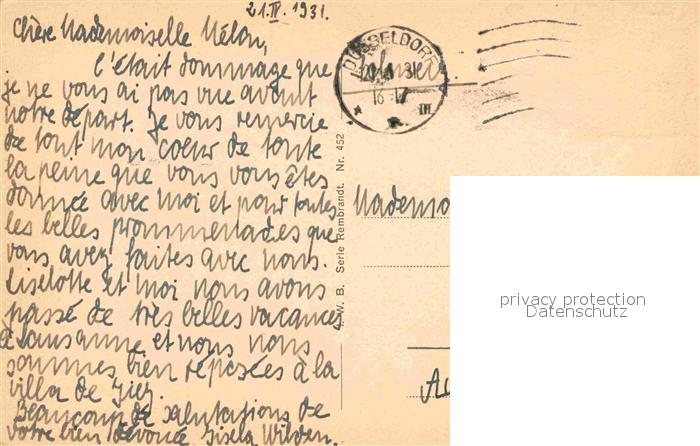 21.IV. 1931.
Chère Mademoiselle Mélon,
c'était dommage que
je ne vous ai pas vue avant
notre départ. Je vous remercie
de tout mon coeur de toute
la peine que vous vous êtes
donnée avec moi et pour toutes
les belles prommenades que
vous avez faites avec nous.
Liselotte et moi nous avons
passé de très belles vacances
à Lausanne et nous nous
sommes bien reposées à la
villa de
Beaucoup de salutations de
votre bien dévouée Gisela Wilden.
W. B. Serie Rembrandt. Nr. 452
DÜSSELDORF
31
16-17
III
Mademo
privacy protection
Datenschutz